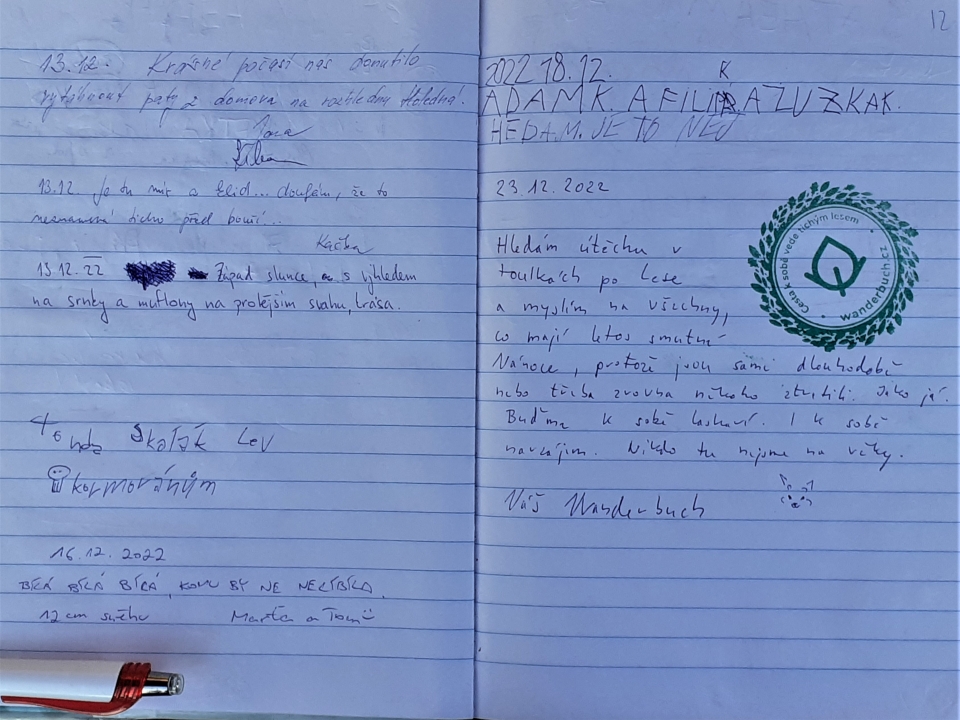 13.12. Krásné počasí nás donutilo
vytáhnout paty z domova na rozhledny Holedná!
Jana
13.12 Je tu mír a klid... doufám, že to
neznamená ticho před bouří...
Kačka
15.12.22 Západ slunce, a s výhledem
na srnky a muflony na protějším svahu, krása.
Tonda Školák Lev
kormoránům
16.12.2022
BÍLÁ BÍLÁ BÍLÁ, KOMU BY NE NELÍBILA.
12 cm sněhu Marťa a Tom
12
2022 18.12.
K
ADAM K. A FILIP A ZUZKA K.
HEDAM. JE TO NEJ
23.12.2022
Hledám útěchu v
toulkách po lese
a myslím na všechny,
co mají letos smutné
Vánoce, protože jsou sami dlouhodobě
nebo třeba zrovna někoho ztratili. Jako já.
Buďme k sobě laskaví. I k sobě
navzájem. Nikdo tu nejsme na věky.
Váš Wanderbuch
Cesta k sobě vede tichým lesem
wanderbuch.cz